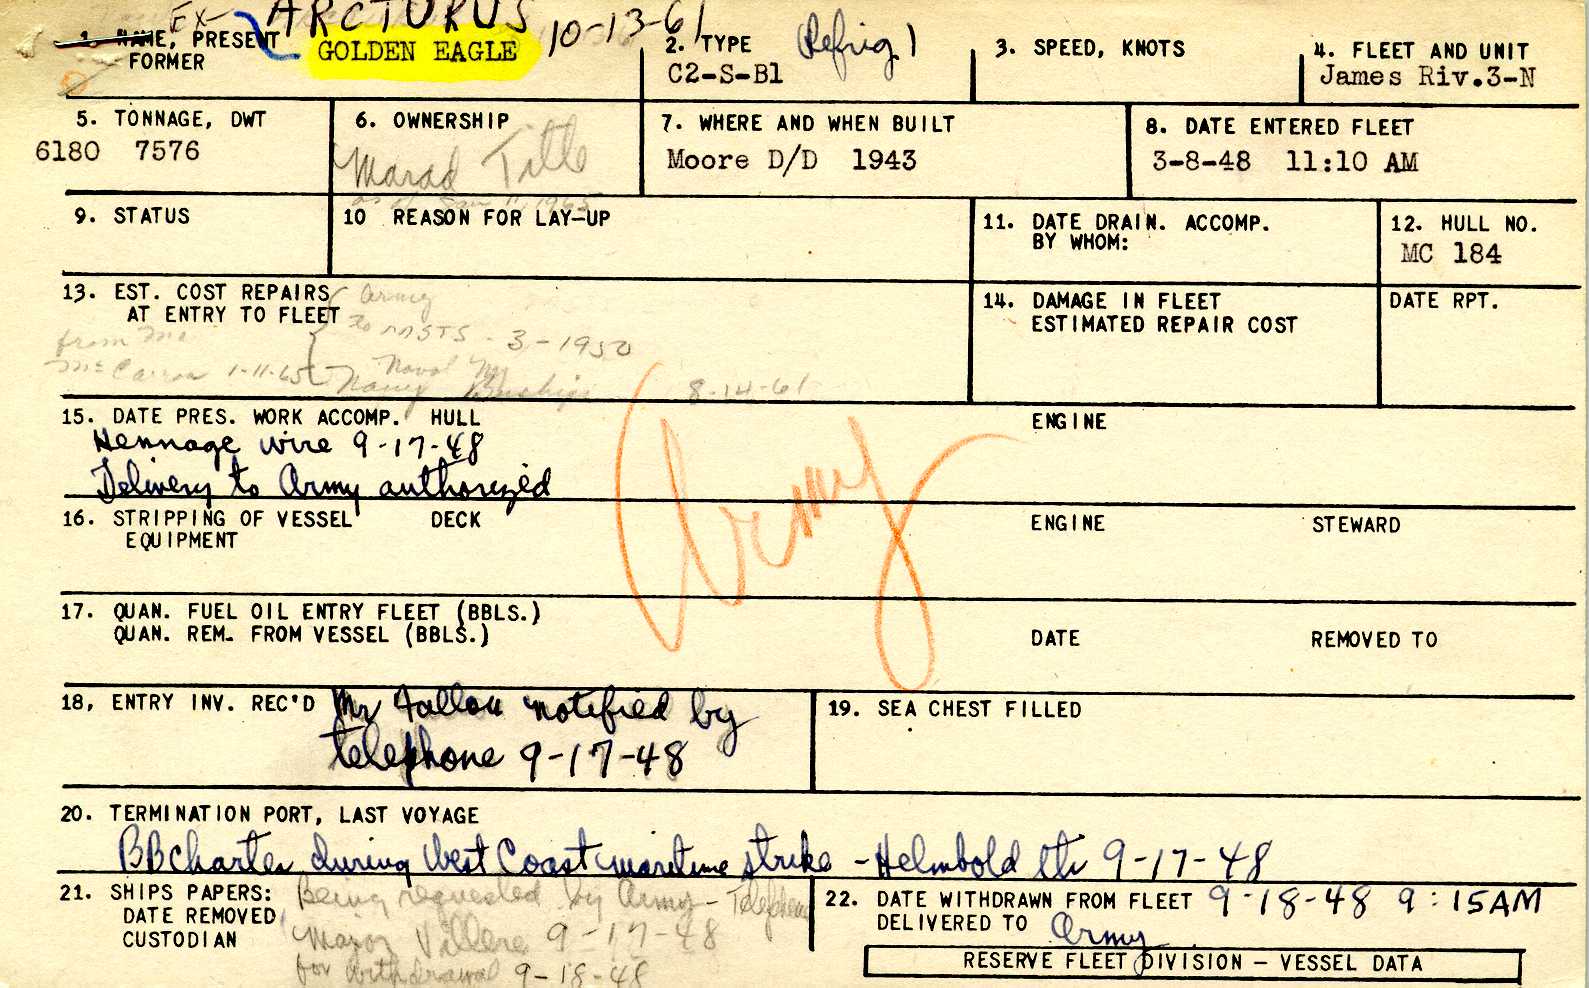 EX- ARCTURUS 10-13-61
1. NAME, PRESENT
FORMER
GOLDEN EAGLE
2. TYPE Refrig 1
C2-S-B1
3. SPEED, KNOTS
4. FLEET AND UNIT
James Riv.3-N
5. TONNAGE, DWT
6180 7576
6. OWNERSHIP
Marad Title
as of Jan 11, 1965
7. WHERE AND WHEN BUILT
Moore D/D 1943
8. DATE ENTERED FLEET
3-8-48 11:10 AM
9. STATUS
10 REASON FOR LAY-UP
11. DATE DRAIN. ACCOMP.
BY WHOM:
12. HULL NO.
MC 184
13. EST. COST REPAIRS
AT ENTRY TO FLEET
Army
to MSTS - 3-1950
from Mr
McCarron 1-11-65
Navy
8-14-61
14. DAMAGE IN FLEET
ESTIMATED REPAIR COST
DATE RPT.
15. DATE PRES. WORK ACCOMP. HULL
ENGINE
Hennage wire 9-17-48
Delivery to Army authorized
Army
16. STRIPPING OF VESSEL DECK
EQUIPMENT
ENGINE
STEWARD
17. QUAN. FUEL OIL ENTRY FLEET (BBLS.)
QUAN. REM. FROM VESSEL (BBLS.)
DATE
REMOVED TO
18, ENTRY INV. REC'D Mr Fallon notified by
telephone 9-17-48
19. SEA CHEST FILLED
20. TERMINATION PORT, LAST VOYAGE
BBCharter during West Coast maritime strike - Helmbold ltr 9-17-48
21. SHIPS PAPERS:
DATE REMOVED
CUSTODIAN
Being requested by Army - Telephone
Major Villere 9-17-48
for withdrawal 9-18-48
22. DATE WITHDRAWN FROM FLEET 9-18-48 9:15AM
DELIVERED TO Army
RESERVE FLEET DIVISION - VESSEL DATA